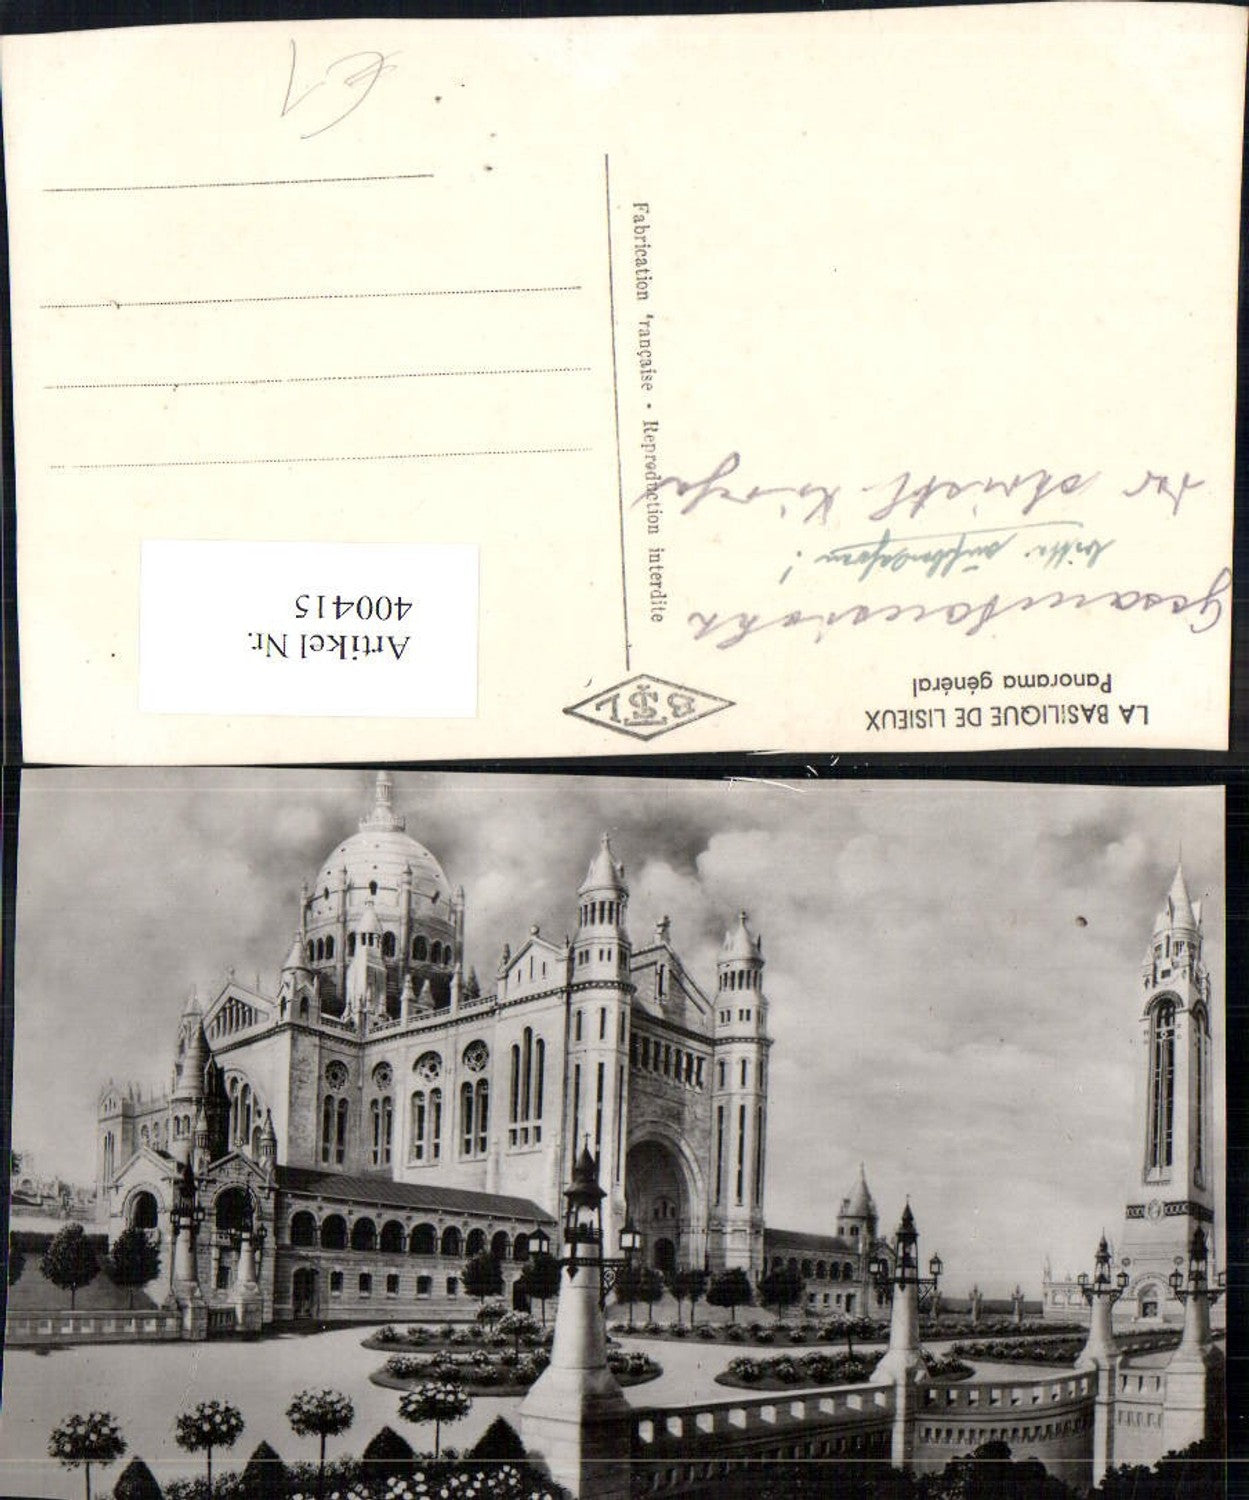 LA BASILIQUE DE LISIEUX
Panorama général
bitte aufbewahren!
Fabrication 'rançaise • Reproduction interdite
BSL
Artikel Nr.
400415